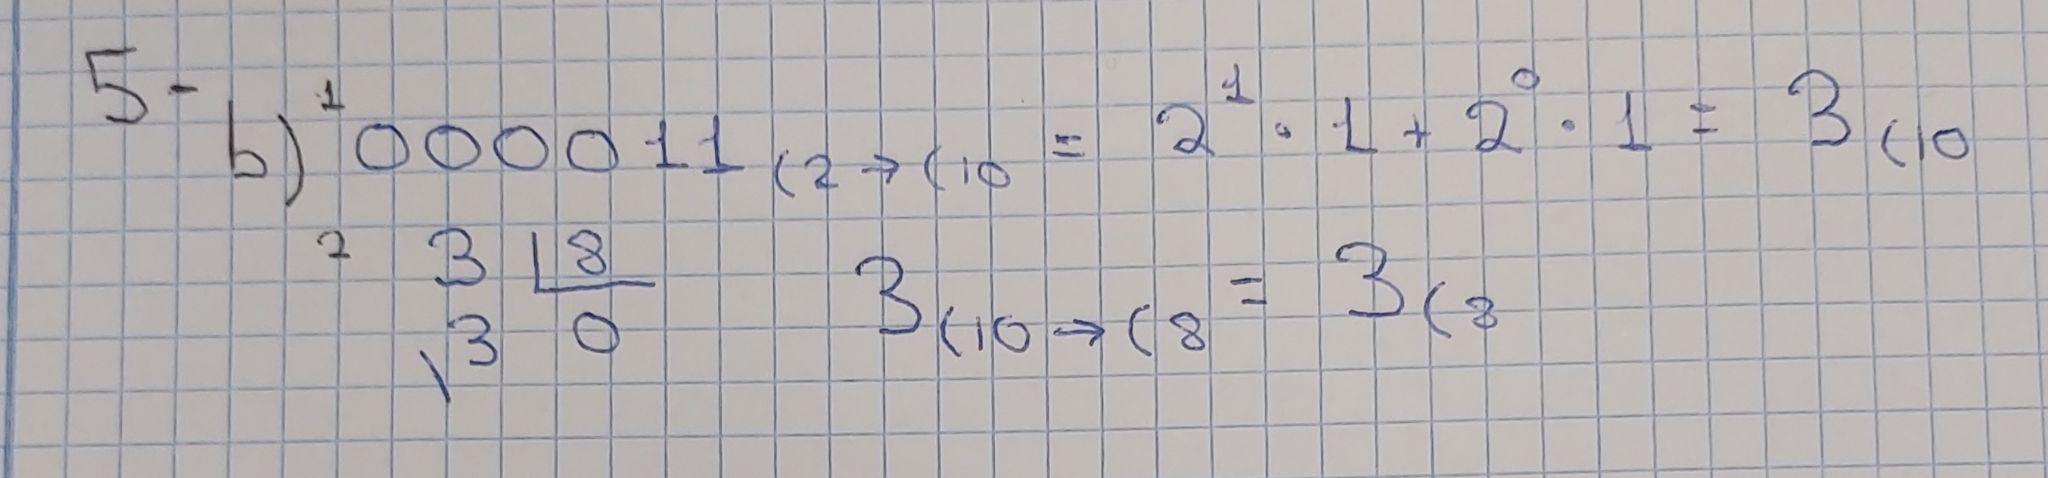 5-
b) ¹ 000011 (2 → (10 = 2¹ · 1 + 2⁰ · 1 = 3 (10
² 3 | 8 3 (10 → (8 = 3 (8
3 0